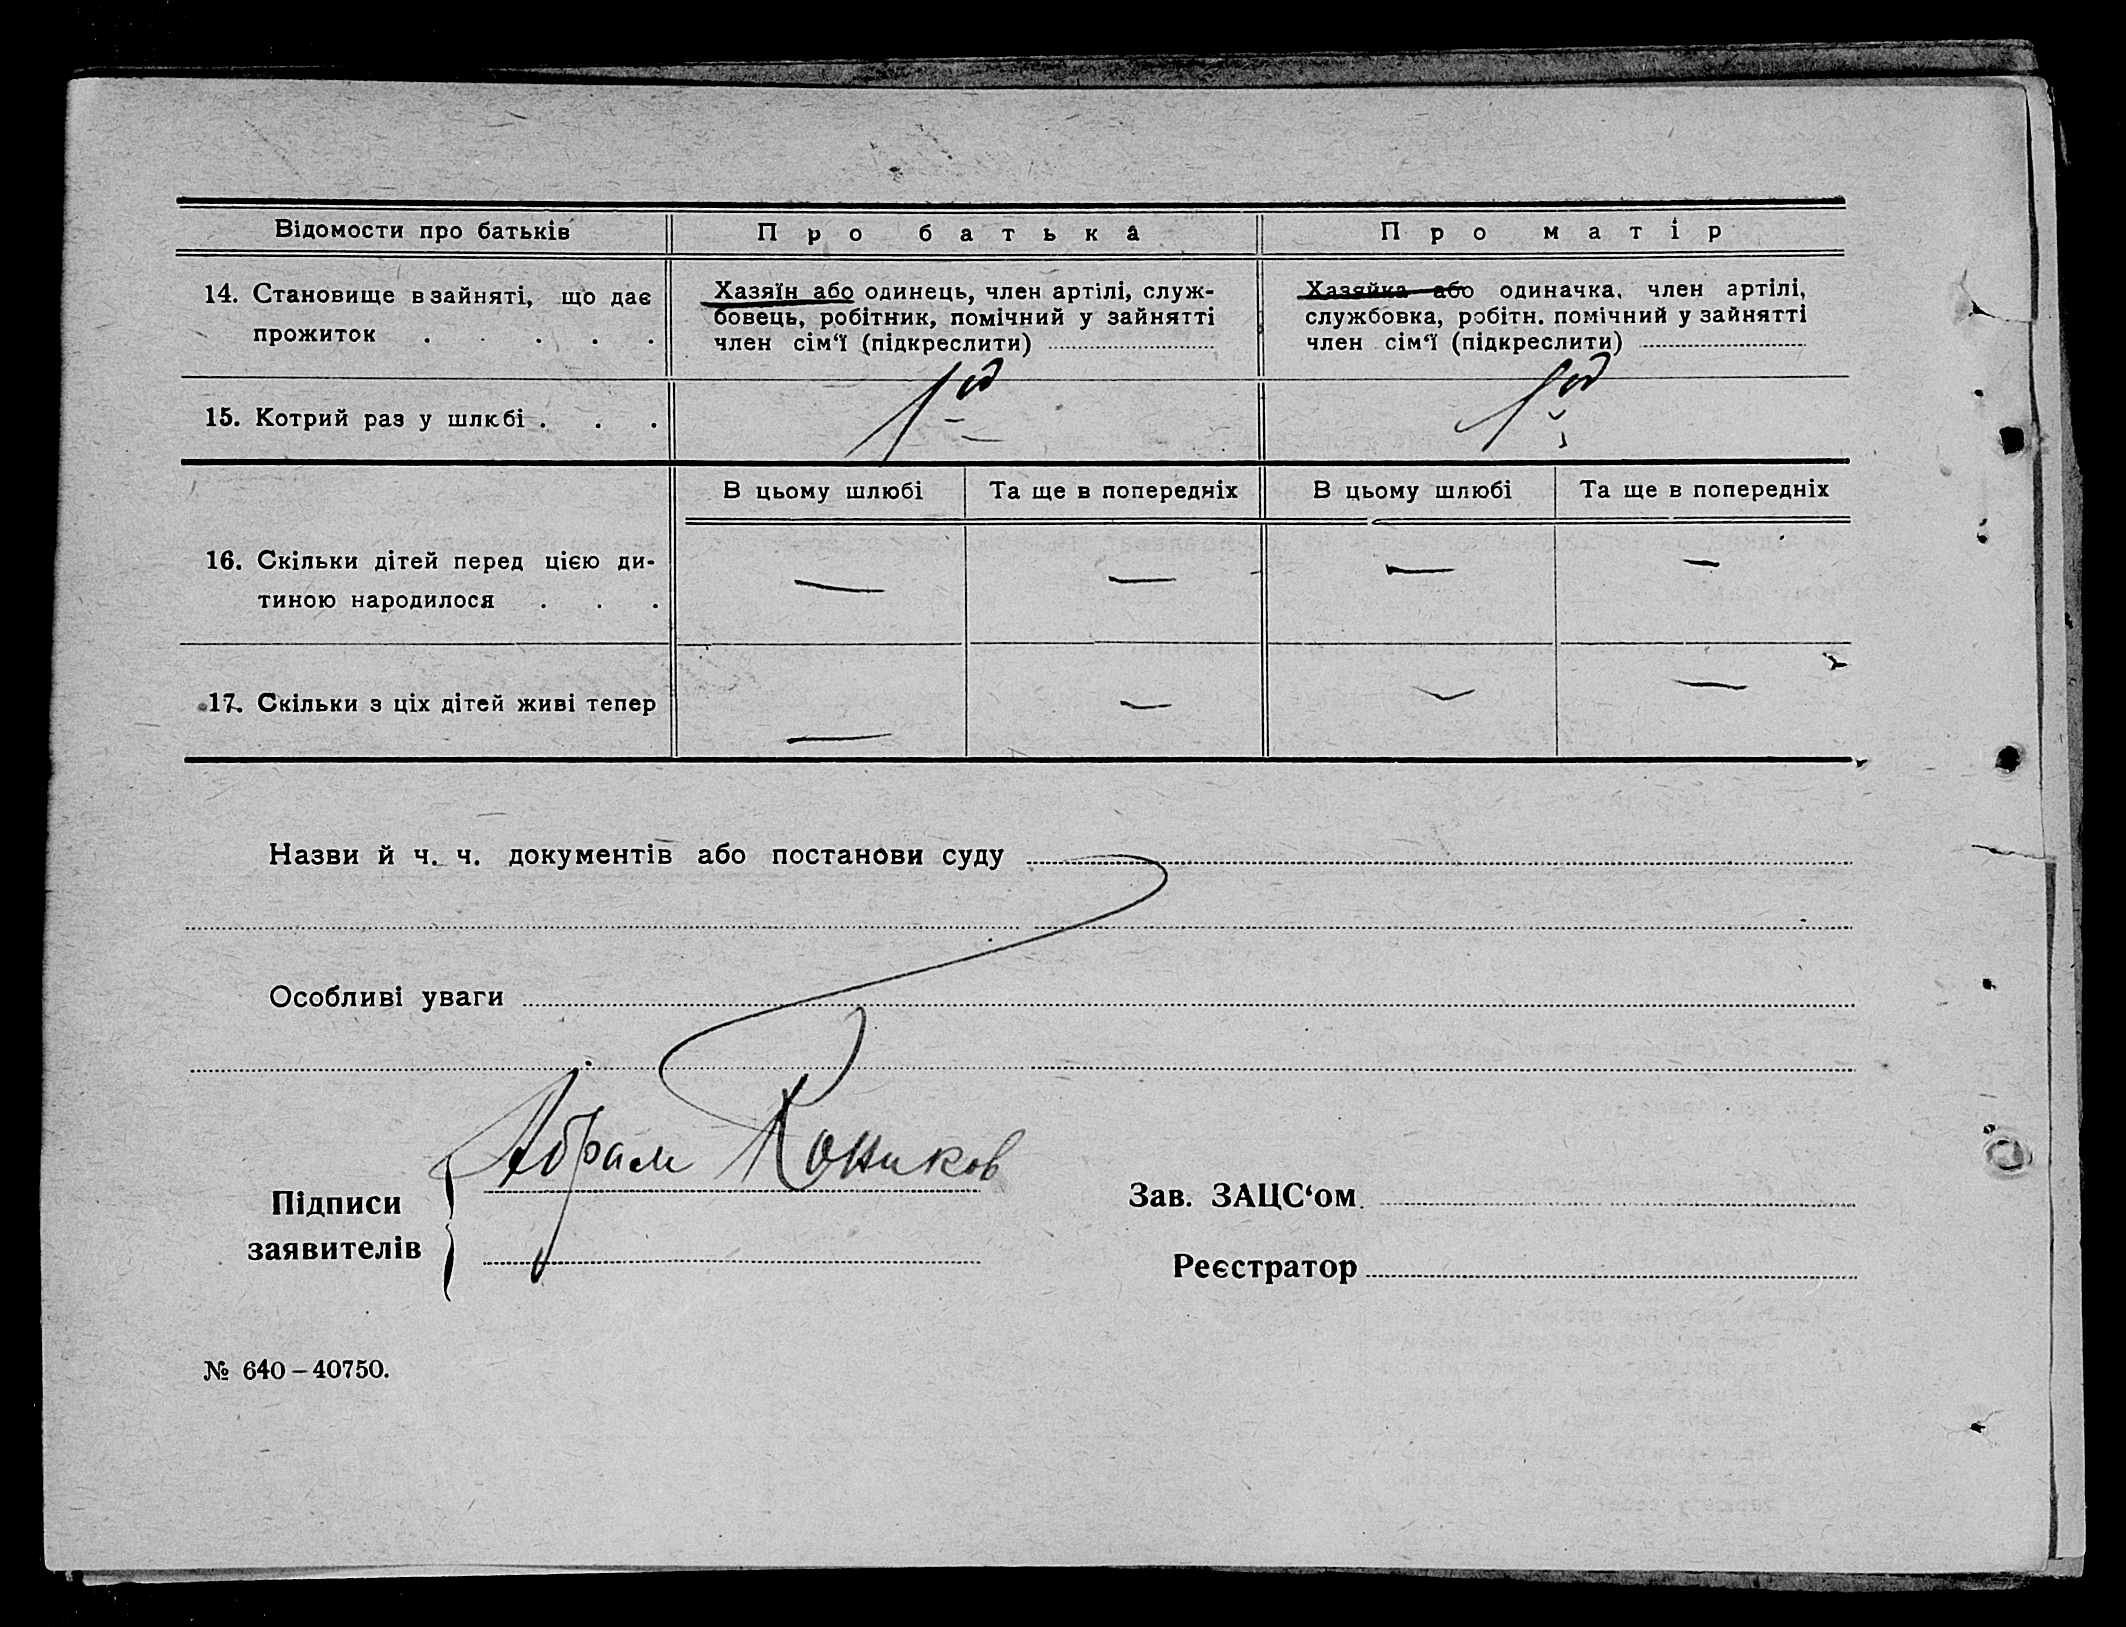 Відомости про батьків
Про батька
Про матір
14. Становище в зайняті, що дає
прожиток . . . . .
Хазяїн або одинець, член артілі, служ-
бовець, робітник, помічний у зайнятті
член сім‘ї (підкреслити)
Хазяйка або одиначка, член артілі,
службовка, робітн. помічний у зайнятті
член сім‘ї (підкреслити)
15. Котрий раз у шлюбі . . .
В цьому шлюбі
Та ще в попередніх
В цьому шлюбі
Та ще в попередніх
16. Скільки дітей перед цією ди-
тиною народилося . . .
— — — —
17. Скільки з ціх дітей живі тепер
— — — —
Назви й ч. ч. документів або постанови суду
Особливі уваги
Абрам Коников
Підписи
заявителів
Зав. ЗАЦС‘ом
Реєстратор
№ 640–40750.